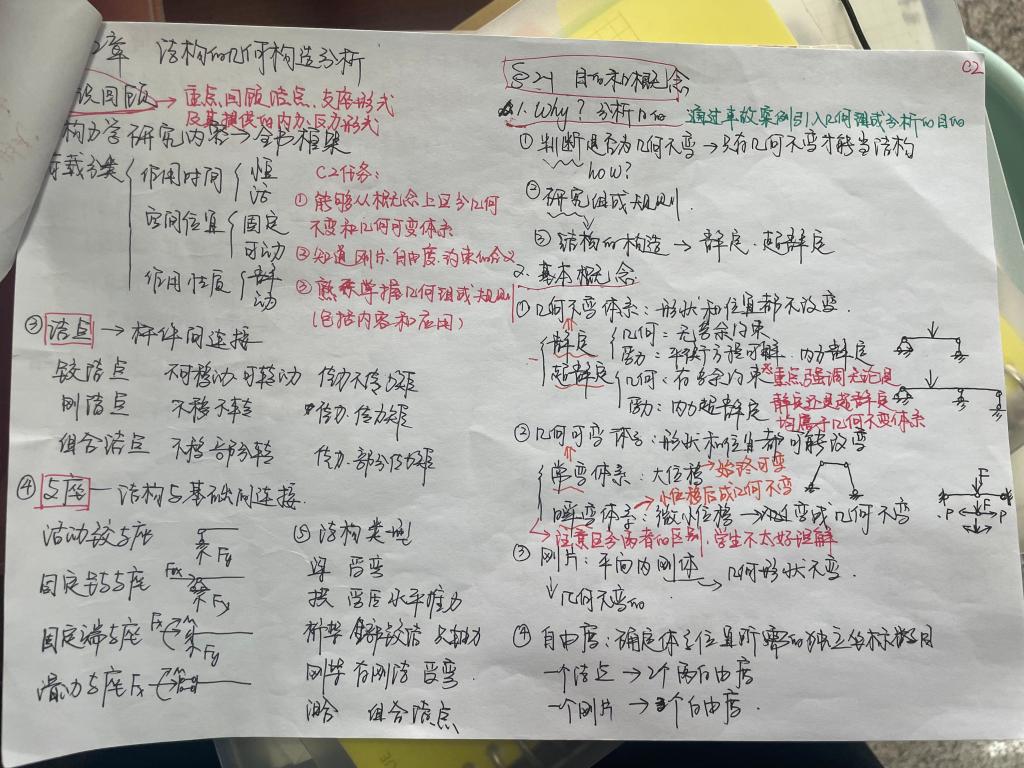 2章 结构的几何构造分析
设回顾 → 重点回顾结点、支座形式
及其提供的内力、反力形式
构力学研究内容 → 全书框架
荷载分类
作用时间 恒
活
空间位置 固定
可动
作用性质 静
动
C2任务:
① 能够从概念上区分几何
不变和几何可变体系
② 知道刚片.自由度.约束的含义
③ 熟练掌握几何组成规则
(包括内容和应用)
③ 结点 → 杆件间连接
铰结点 不可移动.可转动 传力不传力矩
刚结点 不移不转 传力.传力矩
组合结点 不移部分转 传力.部分传力矩
④ 支座 — 结构与基础间连接.
活动铰支座 Fy
固定铰支座 Fx Fy
固定端支座 Fx m Fy
滑动支座 Fx m
⑤ 结构类型
梁 受弯
拱 受压 水平推力
桁架 全部铰结 只轴力
刚架 有刚结 受弯.
混合 组合结点
C2
§2-1 目的和概念
1. Why? 分析目的 通过事故案例引入几何组成分析的目的
① 判断是否为几何不变 → 只有几何不变才能当结构
how?
② 研究组成规则.
③ 结构的构造 → 静定.超静定
2. 基本概念
① 几何不变体系:形状和位置都不改变.
静定 几何:无多余约束
静力:平衡方程可解.内力静定
超静定 几何:有多余约束
静力:内力超静定
*重点强调无论是
静定还是超静定
均属于几何不变体系
② 几何可变体系:形状和位置都可能改变
常变体系:大位移 → 始终可变
→ 小位移后成几何不变
瞬变体系:微小位移 → 变成几何不变
注意区分两者的区别.学生不太好理解
F
P F P
③ 刚片:平面内刚体 → 几何形状不变.
↓ 几何不变的
④ 自由度:确定体系位置所需的独立坐标数目
一个结点 → 2个自由度
一个刚片 → 3个自由度.